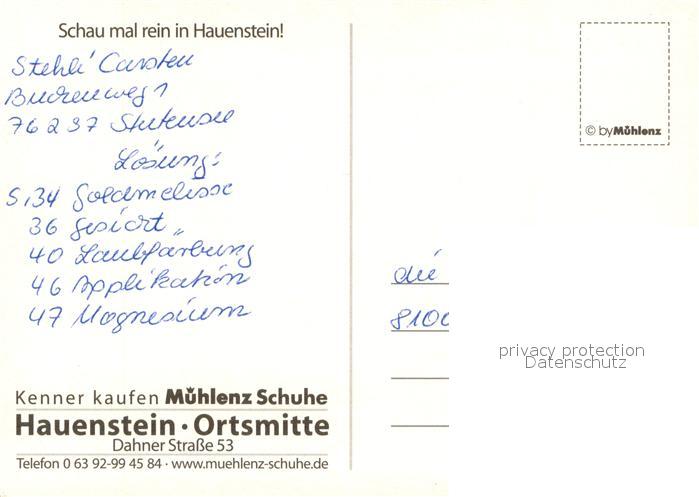 Schau mal rein in Hauenstein!
Stehli Carsten
Buchenweg 1
76297 Stutensee
Lösung:
S. 34 Goldmelisse
36 Gesicht
40 Laubfärbung
46 Applikation
47 Magnesium
Kenner kaufen Mühlenz Schuhe
Hauenstein · Ortsmitte
Dahner Straße 53
Telefon 0 63 92-99 45 84 · www.muehlenz-schuhe.de
© by Mühlenz
die
8100
privacy protection
Datenschutz